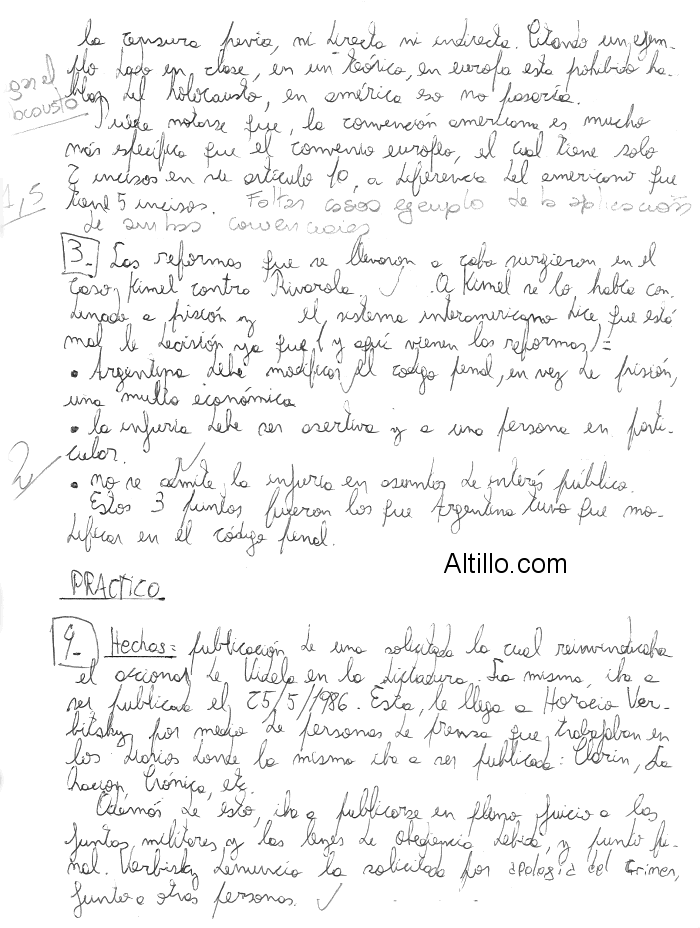 la censura previa, ni directa ni indirecta. Citando un ejem-
plo dado en clase, en un teórico, en europa esta prohibido ha-
blar del holocausto, en américa eso no pasaría.
ocausto
Puede notarse que, la convención americana es mucho
más específica que el convenio europeo, el cual tiene solo
2 incisos en su artículo 10, a diferencia del americano que
tiene 5 incisos. Faltan casos ejemplo de la aplicación
de ambas convenciones
1,5
3- Las reformas que se llevaron a cabo surgieron en el
caso, Kimel contra Rivarola. A Kimel se lo había con-
denado a prisión y el sistema interamericano dice que está
mal la decisión ya que (y aquí vienen las reformas) =
• Argentina debe modificar el código penal, en vez de prisión,
una multa económica
• la injuria debe ser asertiva y a una persona en parti-
cular.
2
• no se admite la injuria en asuntos de interés público.
Estos 3 puntos fueron los que Argentina tuvo que mo-
dificar en el código penal.
Altillo.com
PRACTICO
4- Hechos = publicación de una solicitada la cual reinvindicaba
el accionar de Videla en la dictadura. La misma, iba a
ser publicada el 25/5/1986. Esta, le llega a Horacio Ver-
bitsky por medio de personas de prensa que trabajaban en
los diarios donde la misma iba a ser publicada: Clarín, La
Nación, Crónica, etc.
Además de esto, iba a publicarse en pleno juicio a las
juntas militares, y las leyes de obediencia debida, y punto fi-
nal. Verbisky denuncia la solicitada por apología del crimen,
junto a otras personas.